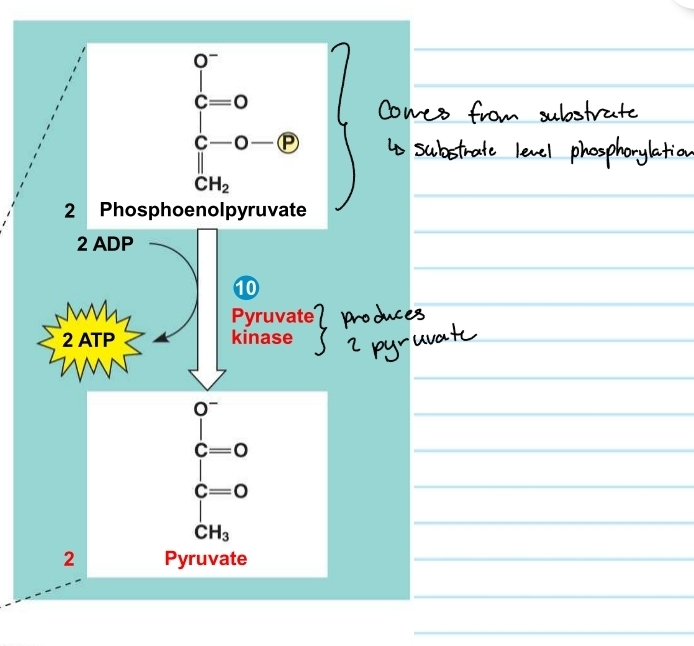 O⁻
C=O
C—O—P
CH₂
2 Phosphoenolpyruvate
Comes from substrate
↳ substrate level phosphorylation
2 ADP
10
Pyruvate
kinase
produces
2 pyruvate
2 ATP
O⁻
C=O
C=O
CH₃
2 Pyruvate